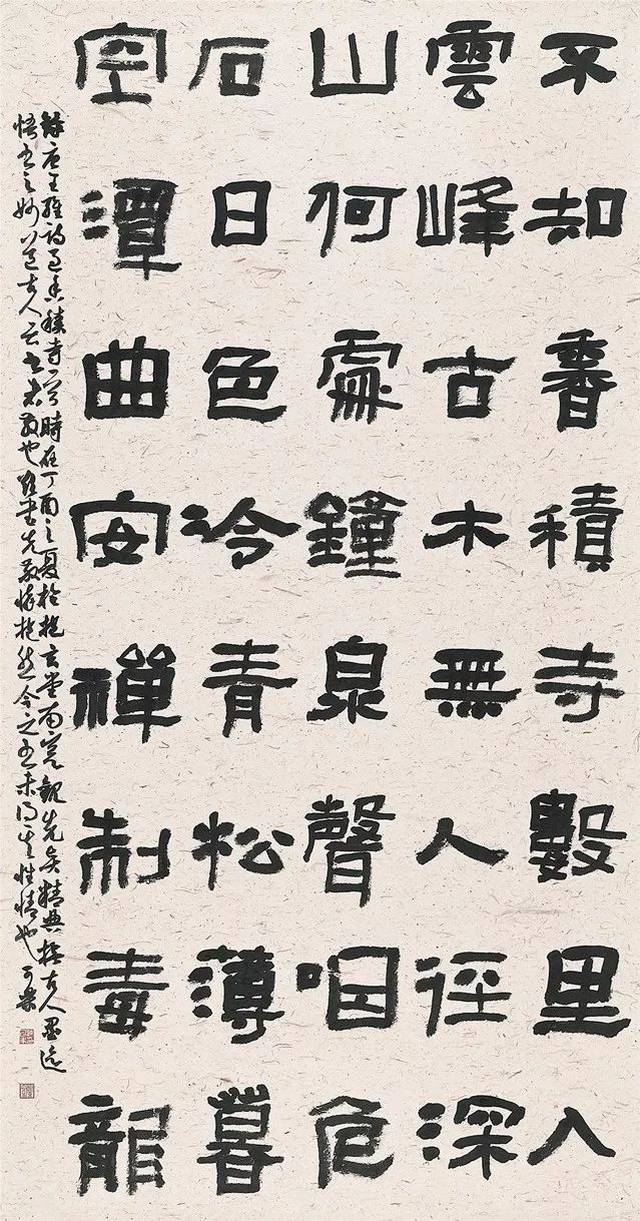 不知香積寺數里入
雲峰古木無人徑深
山何處鐘泉聲咽危
石日色冷青松薄暮
空潭曲安禪制毒龍
錄唐王維詩過香積寺一首時在丁酉之夏於抱玄堂南窗觀先賢精典古人墨跡
悟書之妙道古人云書者散也欲書先散懷抱然今之書未得其性情也